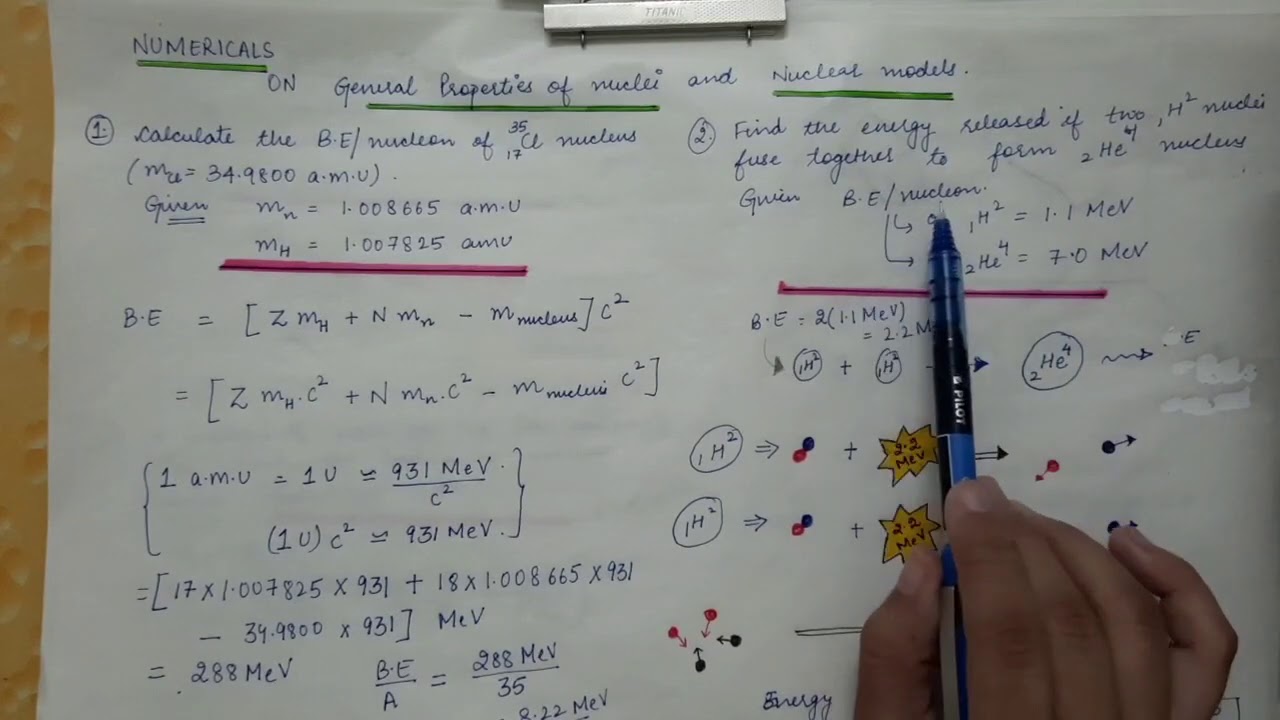 TITANIC
NUMERICALS
ON General Properties of nuclei and Nuclear models.
1. Calculate the B.E/nucleon of ³⁵₁₇Cl nucleus
(m_Cl = 34.9800 a.m.u).
Given m_n = 1.008665 a.m.u
m_H = 1.007825 amu
B.E = [Z m_H + N m_n − m_nucleus] c²
= [Z m_H.c² + N m_n.c² − m_nucleus c²]
{1 a.m.u = 1U ≃ 931 MeV/c².
(1U) c² ≃ 931 MeV.}
= [17 × 1.007825 × 931 + 18 × 1.008665 × 931
− 34.9800 × 931] MeV
= 288 MeV B.E/A = 288 MeV/35
8.22 MeV
2. Find the energy released if two ₁H² nuclei
fuse together to form ₂He⁴ nucleus
Given B.E/nucleon.
↳ ₁H² = 1.1 MeV
↳ ₂He⁴ = 7.0 MeV
B.E = 2(1.1 MeV)
= 2.2 M
₁H² + ₁H² → ₂He⁴ ⇝ .E
₁H² ⇒ + 2.2 MeV ⇒
₁H² ⇒ + 2.2 MeV
Energy
PILOT